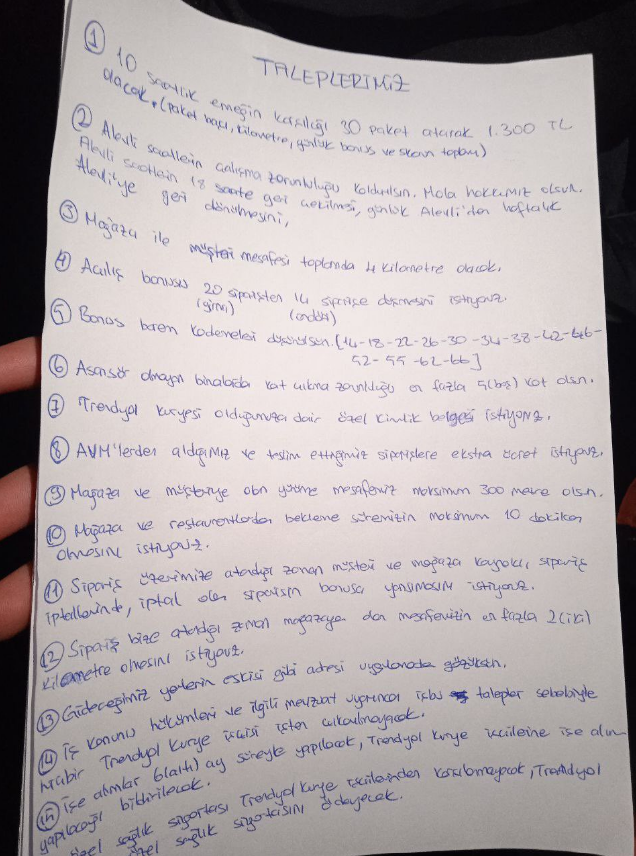 TALEPLERİMİZ
① 10 saatlik emeğin karşılığı 30 paket atarak 1.300 TL
olacak. (paket başı, kilometre, günlük bonus ve skean toplam)
② Alevli saatlein çalışma zorunluluğu kaldırılsın. Mola hakkımız olsun.
Alevli saatlein 18 saate geri çekilmesi, günlük Alevli'den haftalık
Alevli'ye geri dönülmesini,
③ Mağaza ile müşteri mesafesi toplamda 4 kilometre olacak.
④ Açılış bonusu 20 siparişten 14 siparişe düşmesini istiyoruz.
(yirmi) (ondört)
⑤ Bonus barem kademeleri düşürülsün. [14-18-22-26-30-34-38-42-46-
52-55-62-66]
⑥ Asansör olmayan binalarda kat çıkma zorunluluğu en fazla 5(beş) kat olsun.
⑦ Trendyol kuryesi olduğumuza dair özel kimlik belgesi istiyoruz.
⑧ AVM'lerden aldığımız ve teslim ettiğimiz siparişlere ekstra ücret istiyoruz.
⑨ Mağaza ve müşteriye olan yürüme mesafemiz maksimum 300 metre olsun.
⑩ Mağaza ve restaurantlardan bekleme süremizin maksimum 10 dakika
olmasını istiyoruz.
⑪ Sipariş üzerimize atandığı zaman müşteri ve mağaza kaynaklı, sipariş
iptallerinde, iptal olan siparişin bonusa yansımasını istiyoruz.
⑫ Sipariş bize atandığı zaman mağazaya olan mesafemizin en fazla 2(iki)
kilometre olmasını istiyoruz.
⑬ Gideceğimiz yerlerin eskisi gibi adresi uygulamada gözüksün.
⑭ İş kanunu hükümleri ve ilgili mevzuat uyarınca işbu talepler sebebiyle
hiçbir Trendyol kurye işçisi işten çıkarılmayacak.
⑮ işe alımlar 6(altı) ay süreyle yapılacak, Trendyol kurye işçilerine işe alım
yapılacağı bildirilecek.
özel sağlık sigortası Trendyol kurye işçilerinden karşılanmayacak, Trendyol
özel sağlık sigortasını ödeyecek.